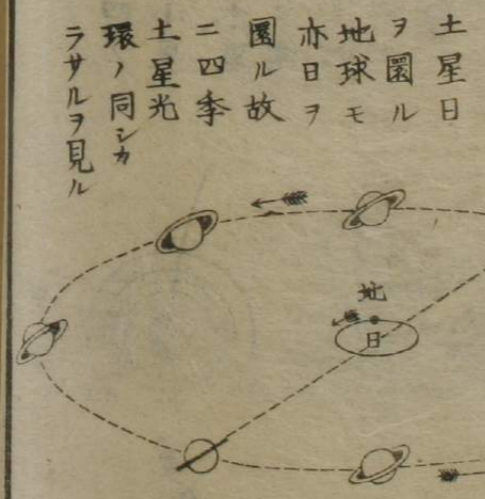 土星日
ヲ圜ル
地球モ
亦日ヲ
圜ル故
ニ四季
土星光
環ノ同シカ
ラサルヲ見ル
地
日